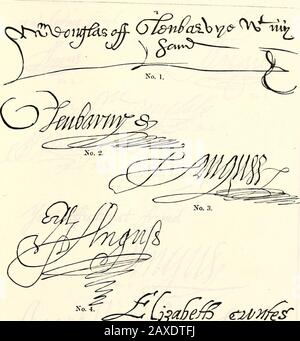 Wm Douglas off Glenbarvye Wt my
hand
No. 1.
Glenbarvye
No. 2.
Anguss
No. 3.
Erll
Anguss
No. 4.
Elizabeth cuntes